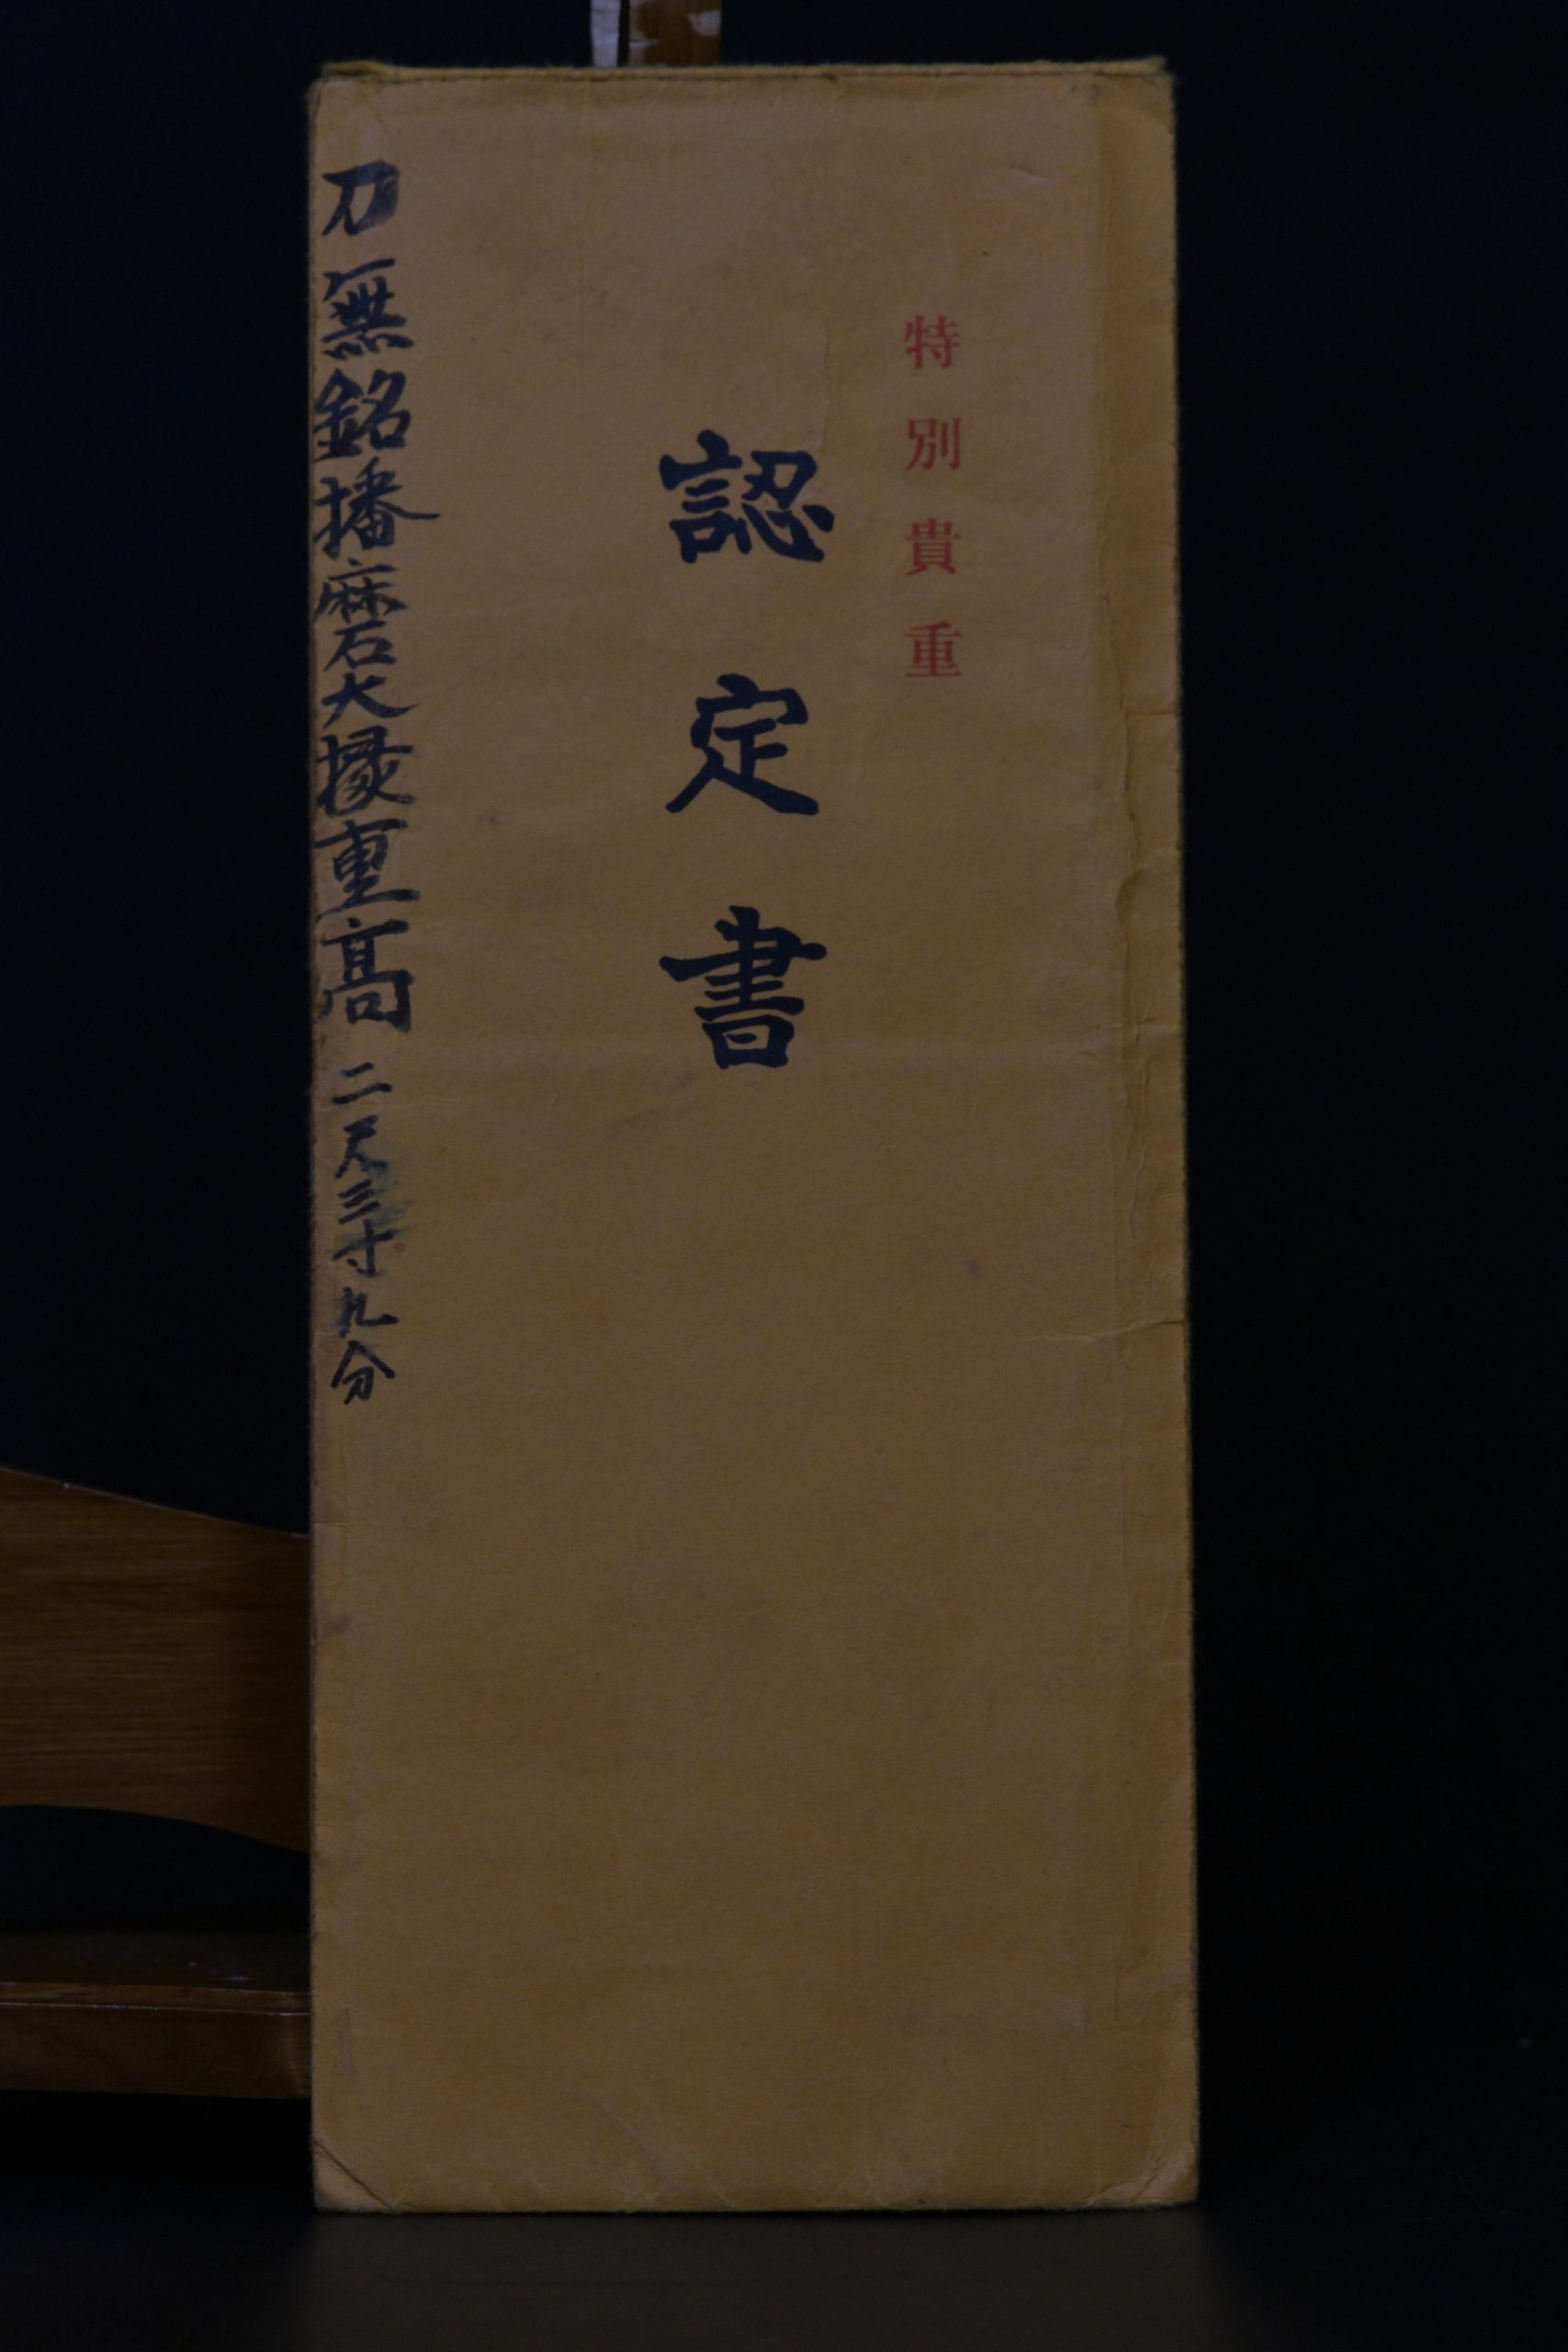 特別貴重
認定書
刀 無銘播磨大掾重高 二尺三寸九分